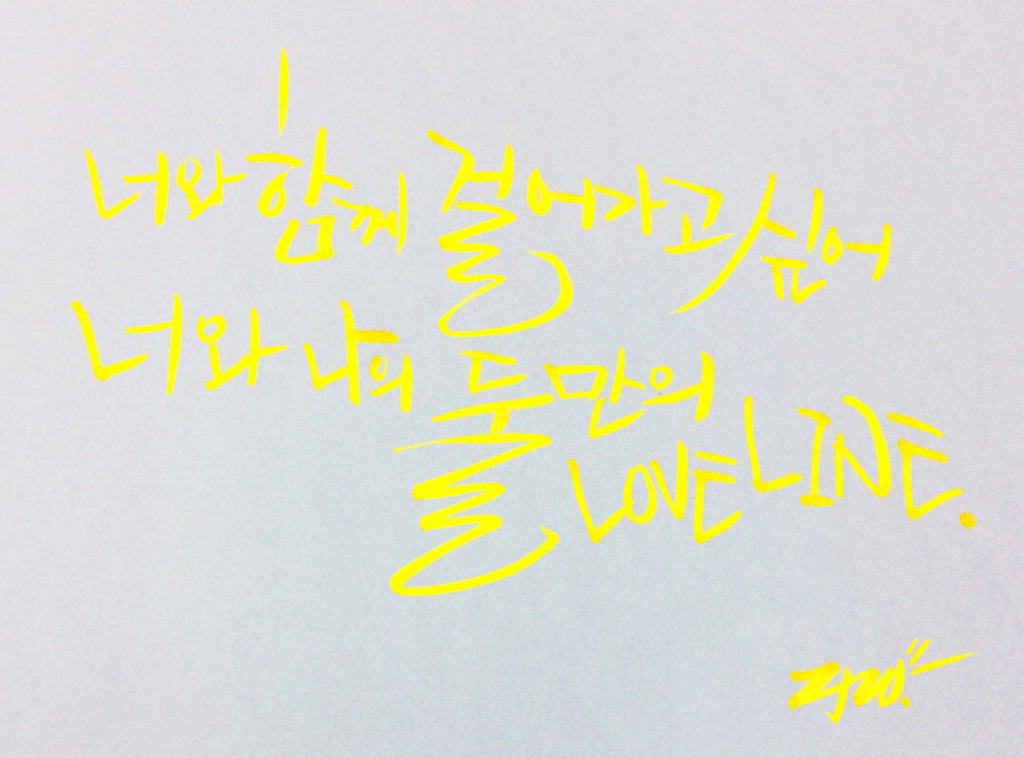 너와 함께 걸어가고 싶어
너와 나의 둘만의
LOVE LINE.